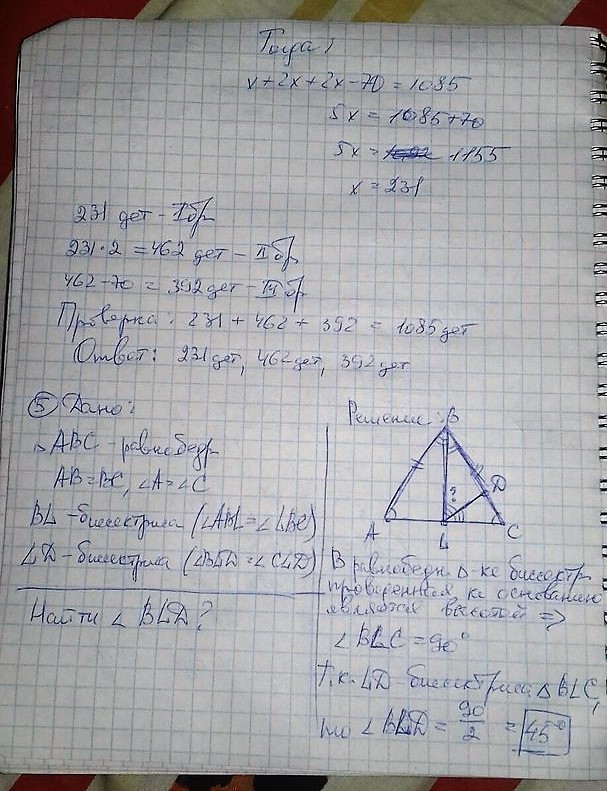 Тогда:
x+2x+2x-70=1085
5x = 1085+70
5x = 1155
x = 231
231 дет - I бр
231·2 = 462 дет - II бр
462-70 = 392 дет - III бр
Проверка: 231 + 462 + 392 = 1085 дет
Ответ: 231 дет, 462 дет, 392 дет
5 Дано:
△ABC - равнобедр
AB=BC, ∠A=∠C
BL - биссектриса (∠ABL=∠LBC)
LD - биссектриса (∠BLD=∠CLD)
Найти ∠BLD?
Решение:
B
?
D
A
L
C
В равнобедн Δ-ке биссектр
проведенная к основанию
является высотой =>
∠BLC = 90°
т.к. LD - биссектриса △BLC,
то ∠BLD = 90/2 = 45°